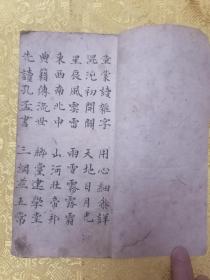 蒙雜字 用心細參詳
混沌初開闢 天地日月光
星辰風雲雷 雨雪霧露霜
東西南北中 山河社邦
典籍傳流世 鄉黨建學堂
先讀孔孟書 三綱並五常